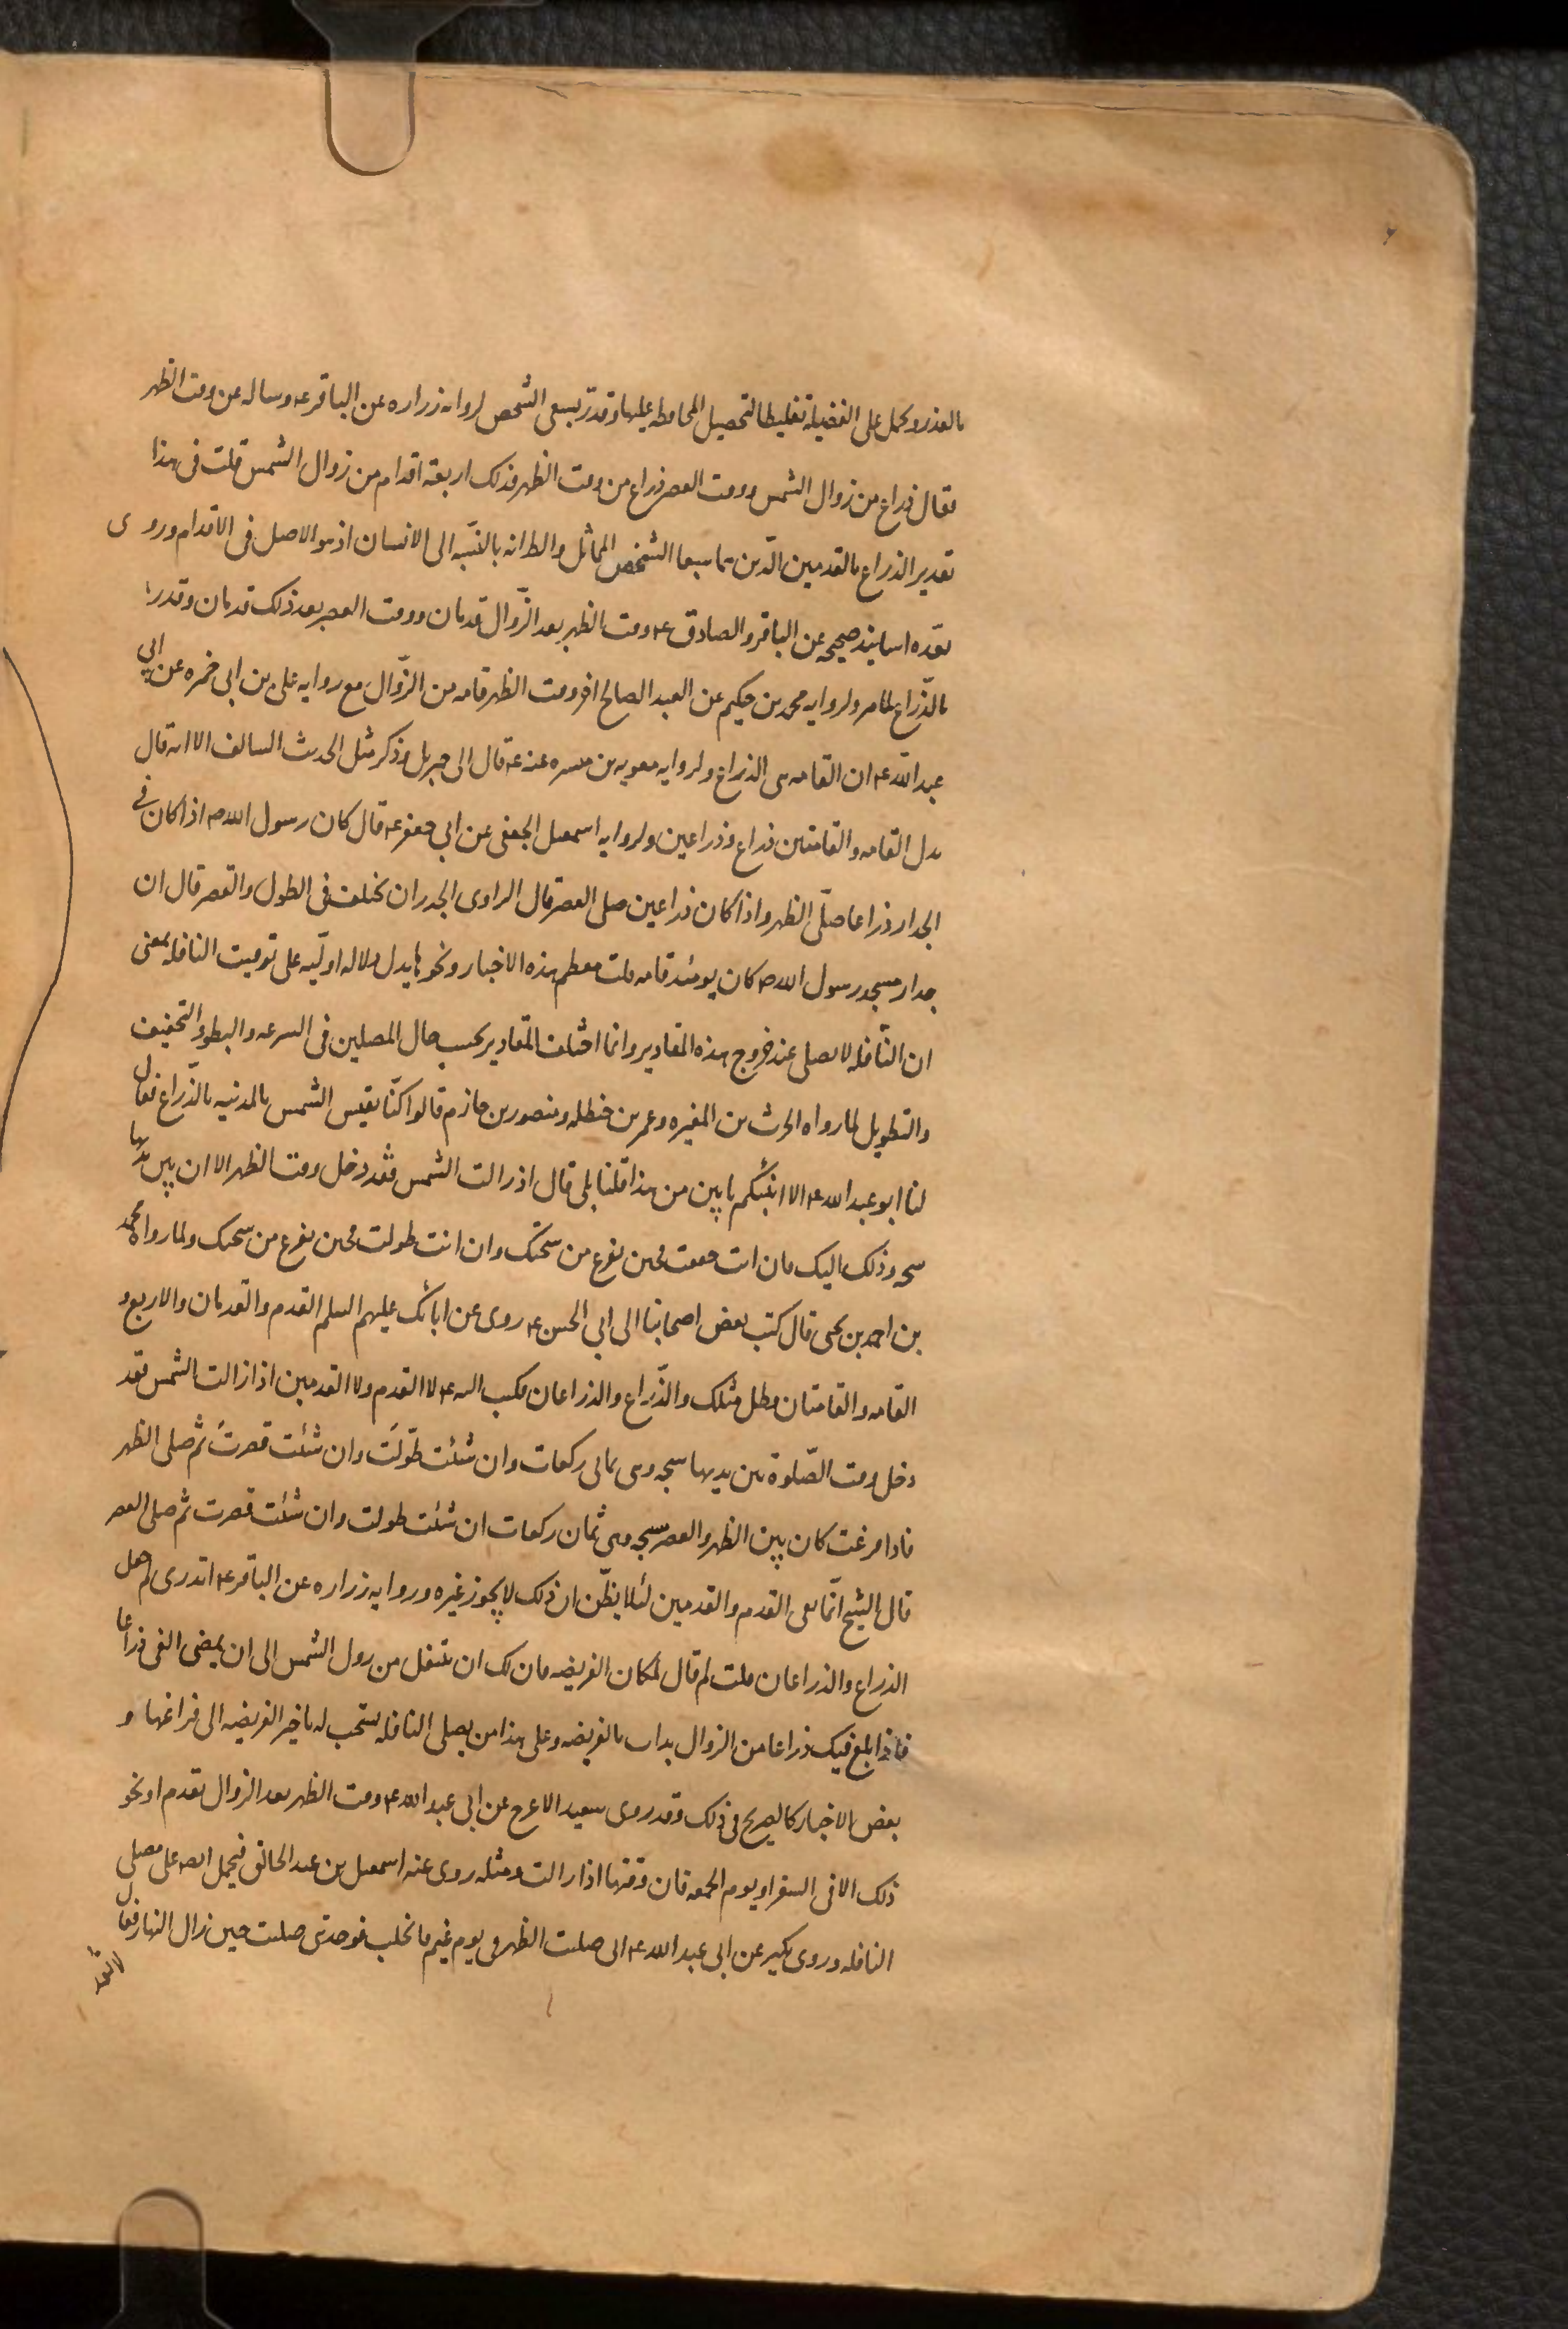 بالعذر ويحمل على الفضيلة تغليظا لتحصيل المحافظه عليها وقدر بسبعى الشخص لروايه زراره عن الباقر عـ وساله عن وقت الظهر
فقال ذراع من زوال الشمس ووقت العصر ذراع من وقت الظهر فذلك اربعة اقدام من زوال الشمس قلت فى هذا
تقدير الذراع بالقدمين الّذين هما سبعا الشخص المماثل والظ انه بالنسبه الى الانسان اذ هو الاصل فى الاقدام وروى
بعّده اسانيد صحيحه عن الباقر والصادق عـ وقت الظهر بعد الزّوال قدمان ووقت العصر بعد ذلك قدمان وقدر
بالذّراع لما مر ولروايه محمد بن حكيم عن العبد الصالح اخر وقت الظهر قامه من الزّوال مع روايه على بن ابى حمزه عن ابى
عبد اللّه عـ ان القامه هى الذراع ولروايه معويه بن ميسره عنه عـ قال اتى جبريل وذكر مثل الحديث السالف الا انه قال
بدل القامه والقامتين ذراع وذراعين ولروايه اسمعيل الجعفى عن ابي جعفر عـ قال كان رسول الله صـ اذا كان فى
الجدار ذراعا صلّى الظهر واذا كان ذراعين صلى العصر قال الراوى الجدران تختلف فى الطول والقصر قال ان
جدار مسجد رسول الله صـ كان يومئذ قامه قلت معظم هذه الاخبار ونحوها يدل دلاله اوليّه على توقيت النافله بمعنى
ان النّافله لا تصلى عند خروج هذه المقادير وانما اختلف المقادير بحسب حال المصلين فى السرعه والبطؤ والتخفيف
والتطويل لما رواه الحرث بن المغيره وعمر بن حنظله ومنصور بن حازم قالوا كنّا نقيس الشمس بالمدينه بالذّراع فقال
لنا ابو عبد الله عـ الا انبئكم بابين من هذا قلنا بلى قال اذ زالت الشمس فقد دخل وقت الظهر الا ان بين يديها
سبحه وذلك اليك فان انت خففت فحين تفرغ من سبحتك وان انت طولت فحين تفرغ من سبحتك ولما رواه محمد
بن احمد بن يحيى قال كتب بعض اصحابنا الى ابي الحسن عـ روى عن ابائك عليهم السلم القدم والقدمان والاربع و
القامه والقامتان وظل مثلك والذّراع والذراعان فكتب اليه عـ لا القدم ولا القدمين اذا زالت الشمس فقد
دخل وقت الصّلوة بين يديها سبحه وهى ثمانى ركعات وان شئت طوّلت وان شئت قصرت ثم صلى الظهر
فاذا فرغت كان بين الظهر والعصر سبحه وهى ثمان ركعات ان شئت طولت وان شئت قصرت ثم صلى العصر
قال الشيخ انّما نفى القدم والقدمين لئلا يظّن ان ذلك لا يجوز غيره وروايه زراره عن الباقر عـ اتدرى لم جعل
الذراع والذراعان قلت لم قال لمكان الفريضه فان لك ان تتنفل من زول الشمس الى ان يمضى الفى ذراعا
فاذا بلغ فيك ذراعا من الزوال بدات بالفريضه وعلى هذا من يصلى النافله يستحب له تاخير الفريضه الى فراغها و
بعض الاخبار كالصريح فى ذلك وقد روى سعيد الاعرج عن ابى عبد الله عـ وقت الظهر بعد الزوال بقدم او نحو
ذلك الا فى السفر او يوم الجمعه فان وقتها اذا زالت ومثله روى عنه اسمعيل بن عبد الخالق فيحمل ايضا على مصلى
النافله وروى بكير عن ابى عبد الله عـ انى صليت الظهر فى يوم غيم فانجلت فوجدتنى صليت حين زال النهار فقال
لا تعد